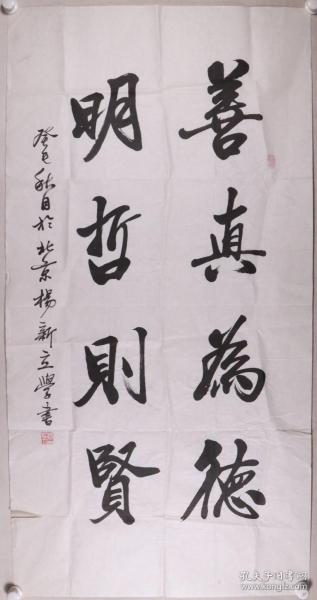 善真為德
明哲則賢
癸巳秋月於北京楊新立學書
孔夫子旧书网